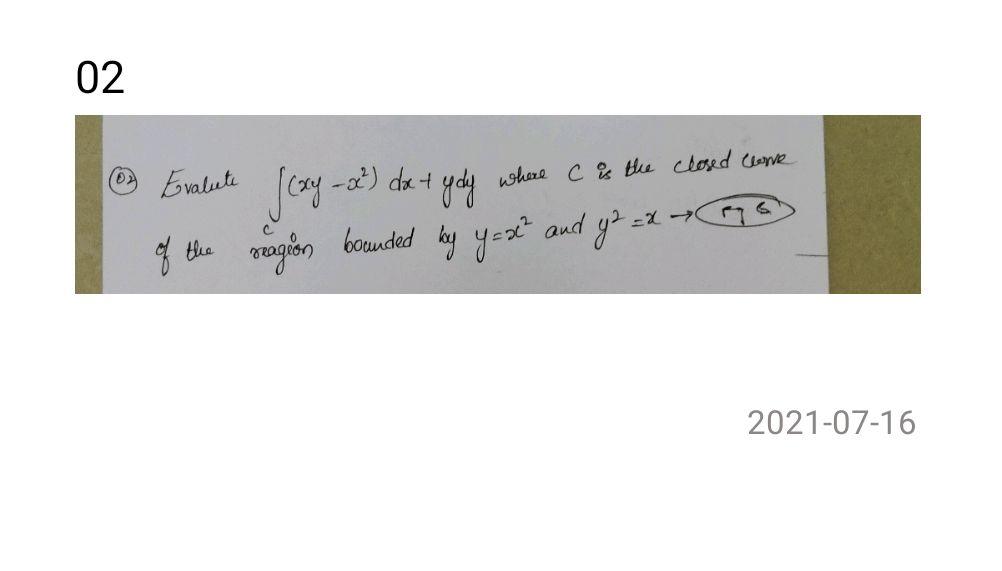 02
02 Evalute ∫(xy - x²) dx + ydy where C is the closed curve
C
of the reagion bounded by y = x² and y² = x →
2021-07-16